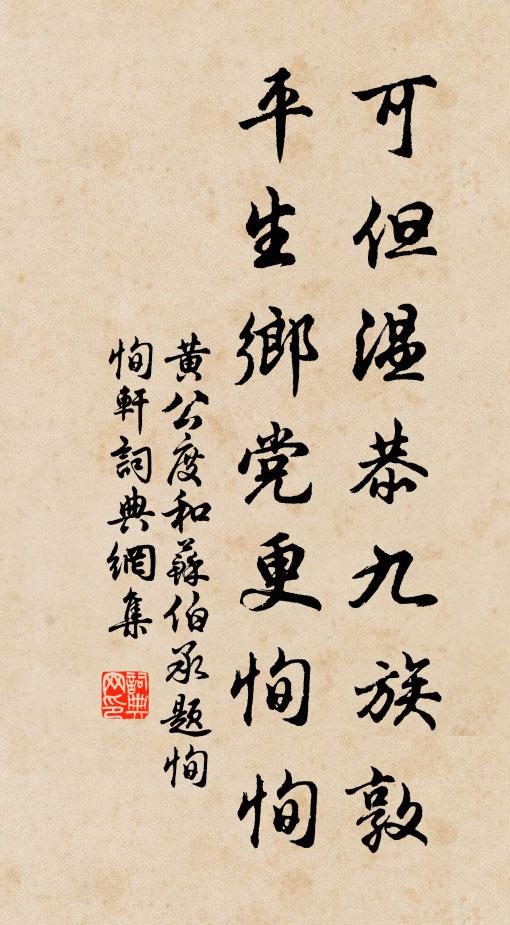 可但温恭九族敦
平生鄉党更恂恂
黄公度和蘇伯承題恂
恂軒詞典網集
詞典網印